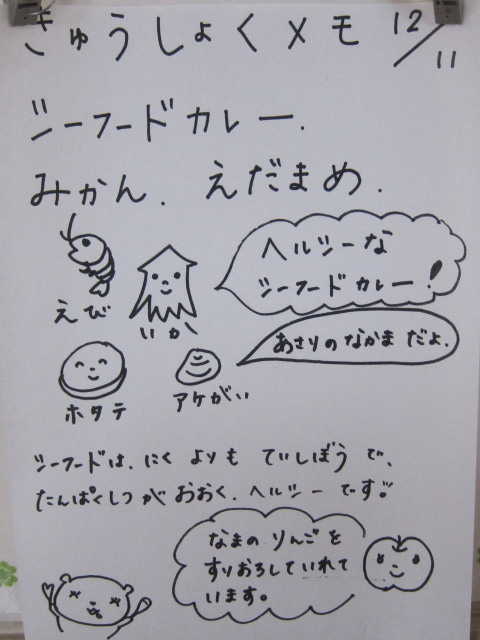 きゅうしょくメモ 12/11
シーフードカレー.
みかん. えだまめ.
ヘルシーな
シーフードカレー!
えび
いか
あさりのなかまだよ.
ホタテ
アケがい
シーフードは、にくよりもていしぼうで、
たんぱくしつがおおく、ヘルシーです!!
なまのりんごを
すりおろしていれて
います。